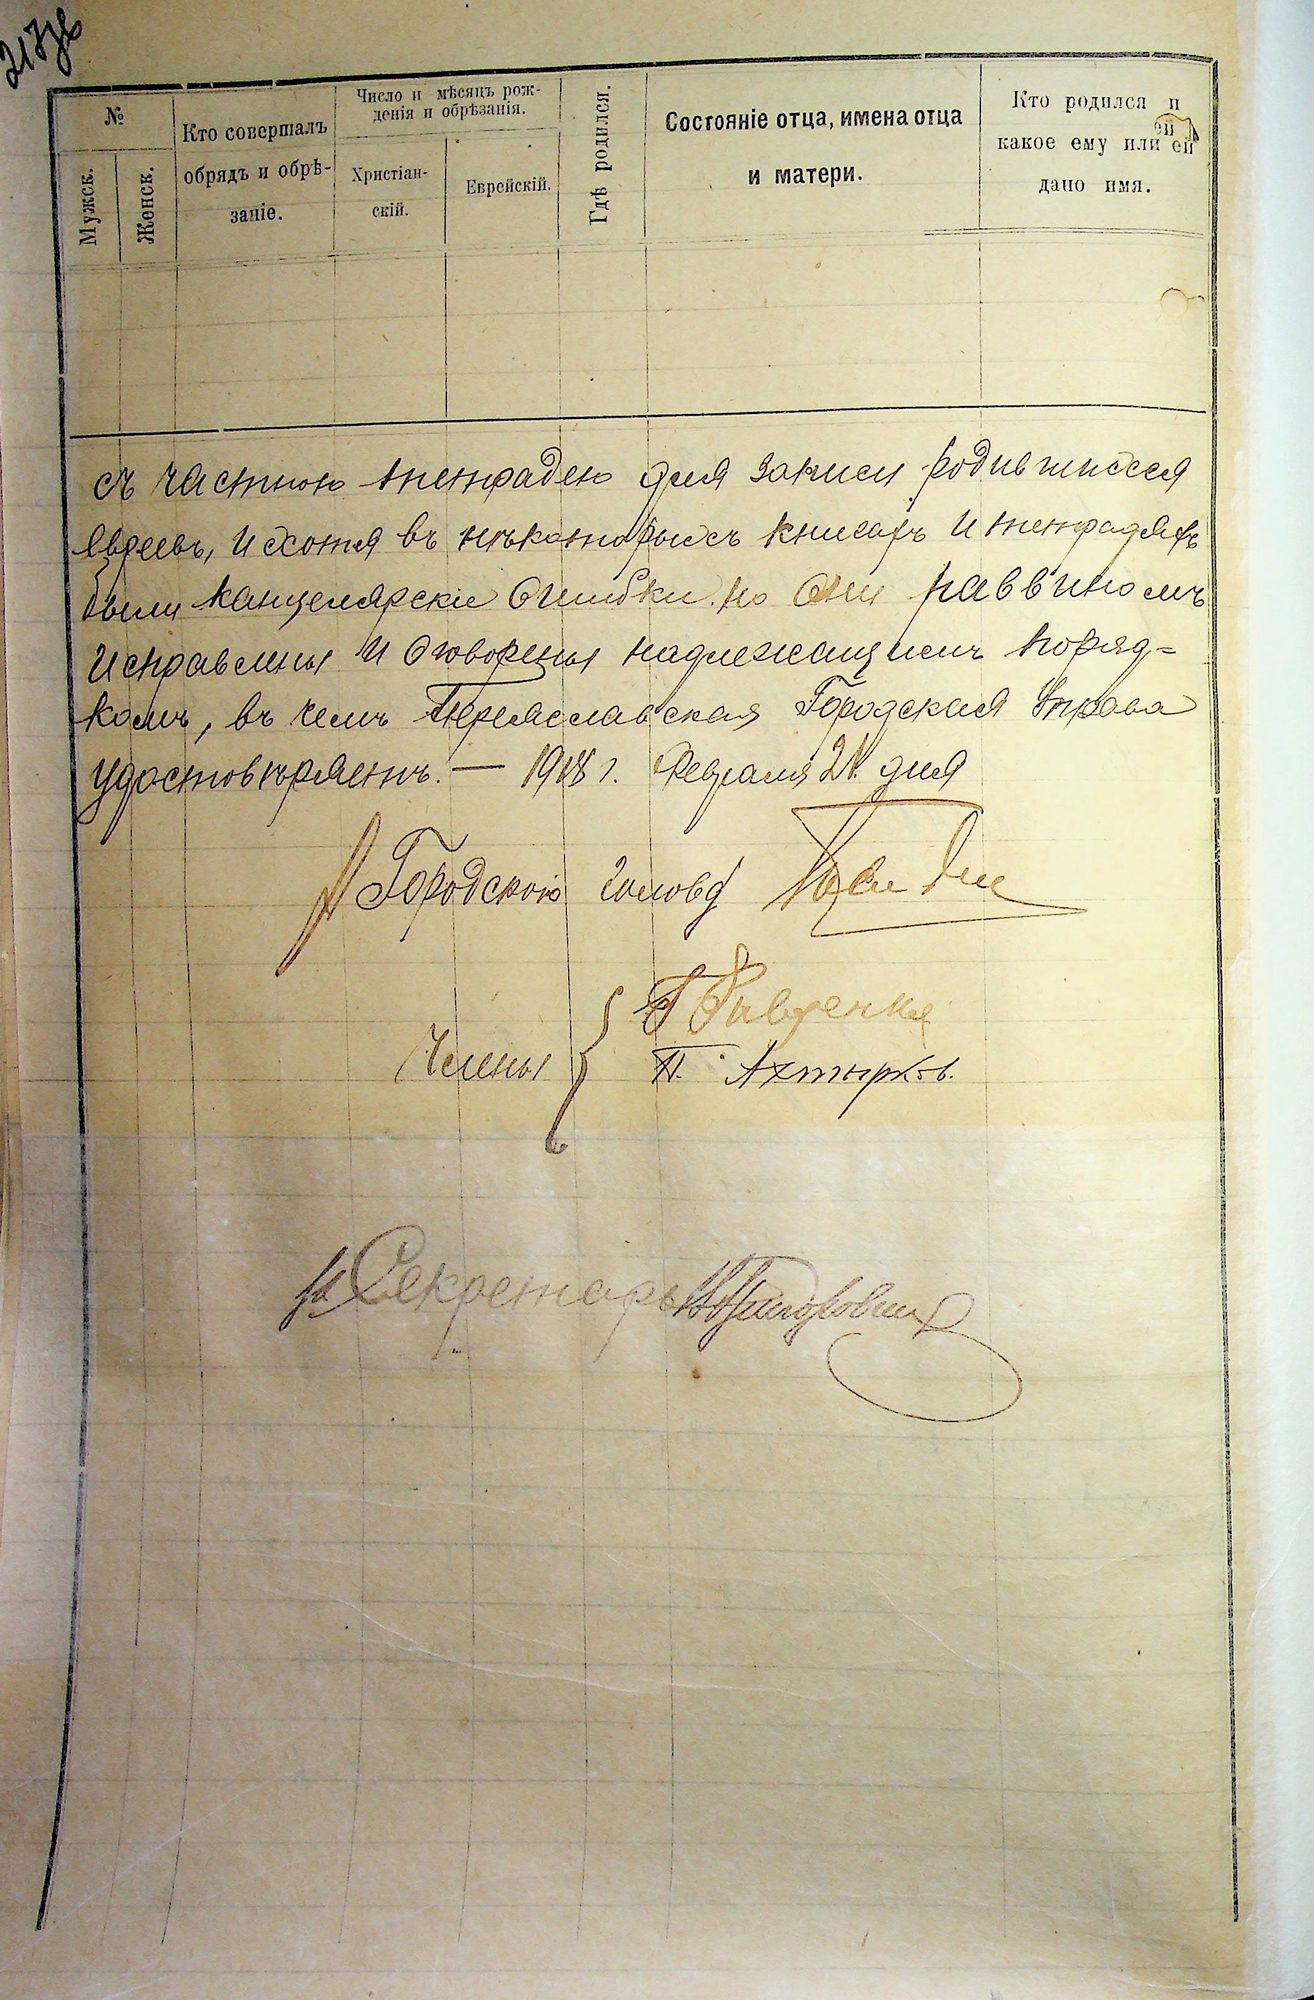 №
Мужск.
Женск.
Кто совершалъ
обрядъ и обрѣ-
заніе.
Число и мѣсяцъ рож-
денія и обрѣзанія.
Христіан-
скій.
Еврейскій.
Гдѣ родился.
Состояніе отца, имена отца
и матери.
Кто родился и
какое ему или ей
дано имя.
съ частною тетрадею для записи родившихся
Евреевъ, и хотя въ нѣкоторыхъ книгахъ и тетрадяхъ
были канцелярскіе ошибки, но они раввиномъ
исправлены и оговорены надлежащимъ поряд-
комъ, въ чемъ Переяславская Городская Управа
удостовѣряетъ. — 1918 г. Февраля 21 дня
Городской голова
Члены
П. Ахтырков.
Секретарь